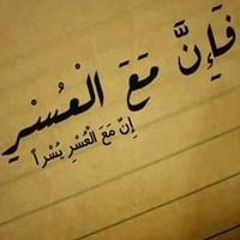 فَإِنَّ مَعَ الْعُسْرِ
إِنَّ مَعَ الْعُسْرِ يُسْراً